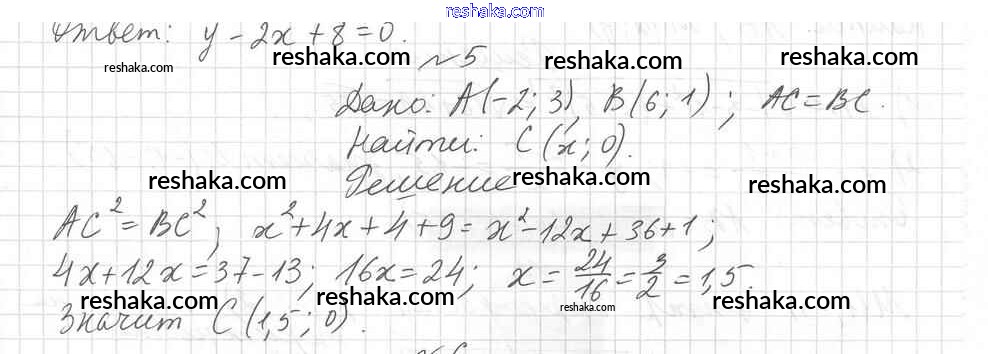 reshaka.com
Ответ: y - 2x + 8 = 0.
reshaka.com reshaka.com reshaka.com reshaka.com
№5
Дано: A(-2; 3), B(6; 1); AC = BC.
Найти: C(x; 0).
Решение
reshaka.com reshaka.com reshaka.com
AC² = BC²; x² + 4x + 4 + 9 = x² - 12x + 36 + 1;
4x + 12x = 37 - 13; 16x = 24; x = 24/16 = 3/2 = 1,5.
reshaka.com reshaka.com reshaka.com reshaka.com
Значит C(1,5; 0).